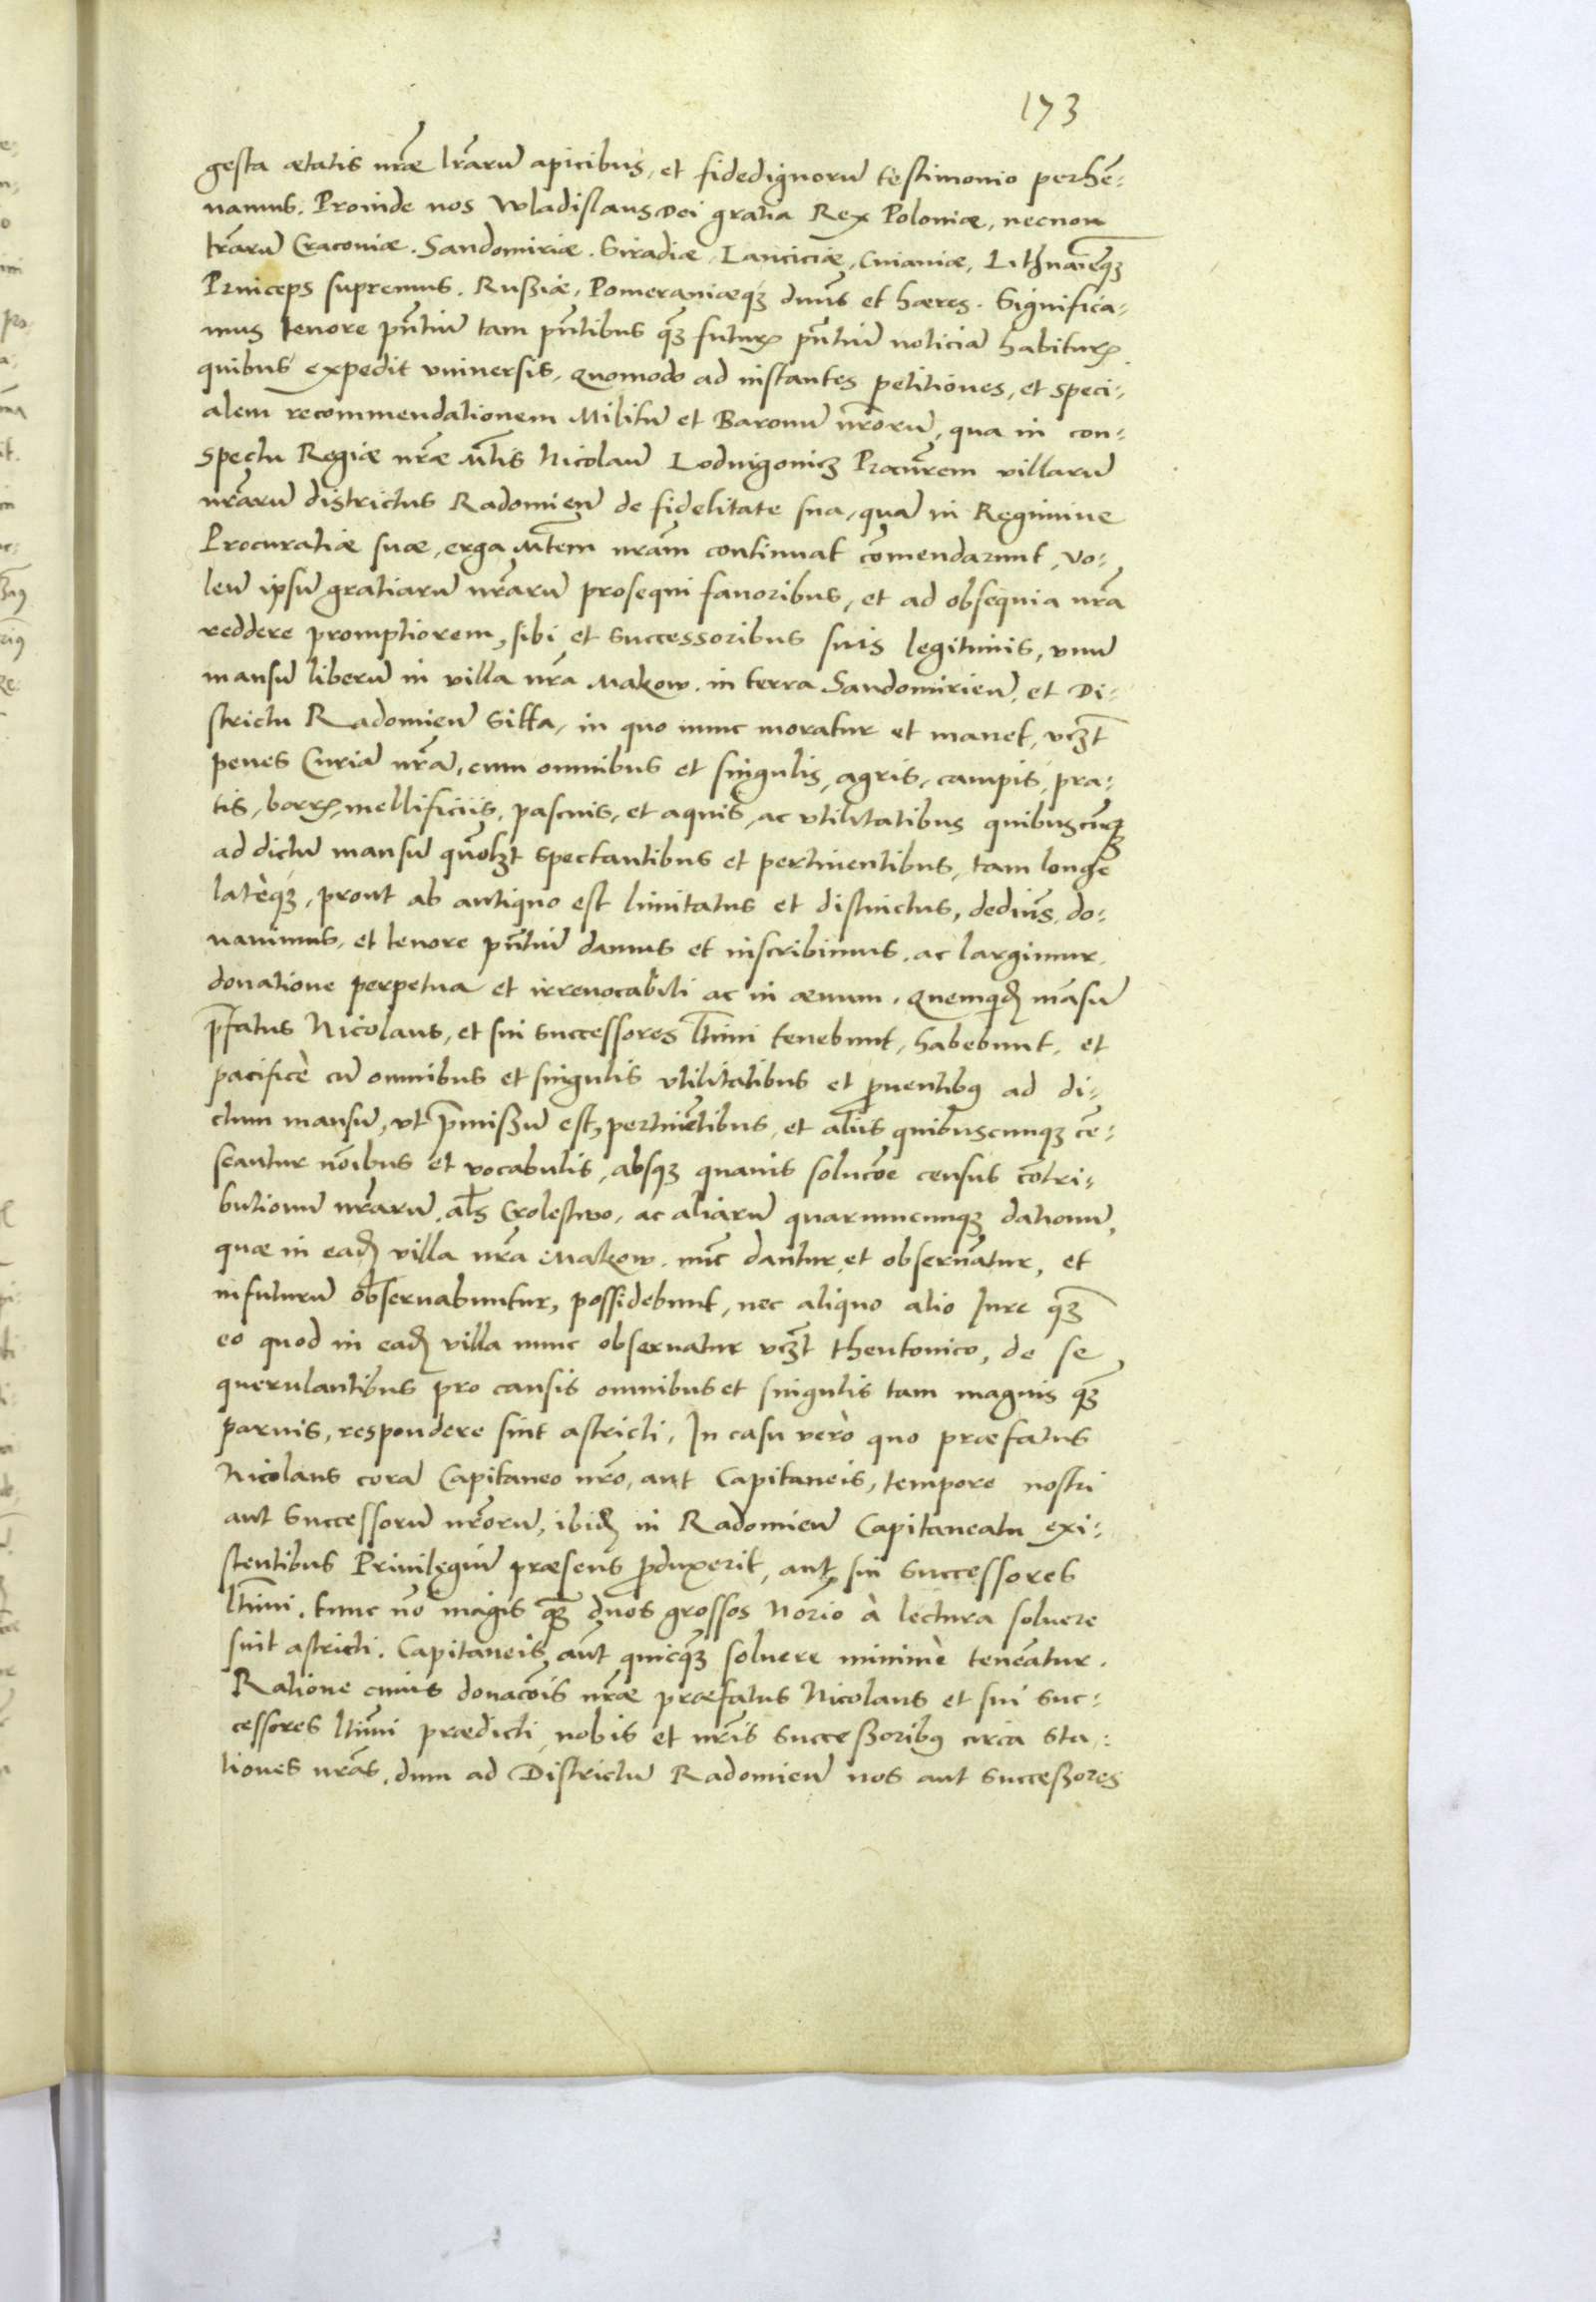 173
gesta ætatis nr̃æ lr̃arũ apicibus, et fidedignorũ testimonio perhẽ:
namus. Proinde nos Wladislaus Dei gratia Rex Poloniæ, necnon
tr̃arũ Craconiæ. Sandomiriæ. Siradiæ, Lanciciæ, Cuiauiæ, Lithuaniæq₃
Princeps supremus. Rußiæ, Pomeraniæq₃ dnũs et hæres. Significa:
mus tenore pñtiũ tam pñtibus q̃₃ futurꝝ pñtiũ noticiã habiturꝝ
quibus expedit vniuersis, Quomodo ad instantes petitiones, et speci:
alem recommendationem Militũ et Baronũ nr̃orũ, qua in con:
spectu Regiæ nr̃æ Mt̃is Nicolaũ Loduigouicz Procur̃em villarũ
nr̃arũ districtus Radomieñ de fidelitate sua, quã in Regimine
Procuratiæ suæ, erga Mt̃em nr̃am continuat cõmendarunt, vo:
leñ ipsũ gratiarũ nr̃arũ prosequi fauoribus, et ad obsequia nr̃a
reddere promptiorem, sibi et successoribus suis legitimis, vnũ
mansũ liberũ in villa nr̃a Makow. in terra Sandomirieñ, et Di:
strictu Radomieñ sitta, in quo nunc moratur et manet, vcz̃t
penes Curiã nr̃ã, cum omnibus et singulis, agris, campis, pra:
tis, borrꝝ, mellificiis, pascuis, et aquis, ac vtilitatibus quibuscũq₃
ad dictũ mansũ quõlz̃t spectantibus et pertinentibus, tam longè
latèq₃, prout ab antiquo est limitatus et distinctus, dedim̃s, do:
nauimus, et tenore pñtiũ damus et inscribimus, ac largimur
donatione perpetua et irreuocabili ac in æuum. Quemquid̃ mãsũ
p̃fatus Nicolaus, et sui successores ltimi tenebunt, habebunt, et
pacificè cũ omnibus et singulis vtilitatibus et ꝓuentibꝰ ad di:
ctum mansũ, vt p̃mißũ est, pertinẽtibus, et aliis quibuscunq₃ cẽ:
seantur nõibus et vocabulis, absq₃ quauis solucõe census cõtri:
butionũ nr̃arũ, al̃s Crolestwo, ac aliarũ quarumcunq₃ dationũ,
quæ in ead̃ villa nr̃a Makow. nũc dantur et obseruãtur, et
infuturũ obseruabuntur, possidebunt, nec aliquo alio Iure q̃₃
eo quod in ead̃ villa nunc obseruatur vcz̃t theutonico, de se
querulantibus pro causis omnibus et singulis tam magnis q̃₃
paruis, respondere sint astricti. In casu verò quo præfatus
Nicolaus corã Capitaneo nr̃o, aut Capitaneis, tempore nostri
aut successorũ nr̃orũ, ibid̃ in Radomieñ Capitaneatu exi:
stentibus Priuilegiũ præsens ꝓduxerit, aut sui successores
ltĩmi. tunc nõ magis q̃₃ duos grossos Norĩo à lectura soluere
sint astricti. Capitaneis aũt quicq̃₃ soluere minimè teneãtur.
Ratione cuius donacõis nr̃æ præfatus Nicolaus et sui suc:
cessores ltĩmi prædicti, nobis et nr̃is successoribꝰ circa sta:
tiones nr̃as, dum ad Districtũ Radomieñ nos aut succeßores